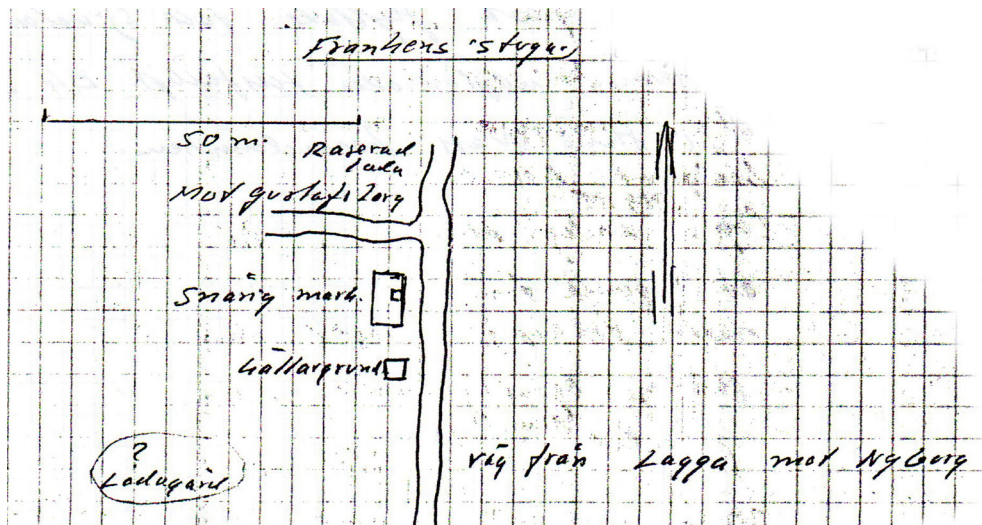 Frankens stuga.
50 m.
Raserad
lada
Mot Gustafs torg
Snårig mark.
källargrund
?
Ladugård
väg från Lagga mot Nyborg